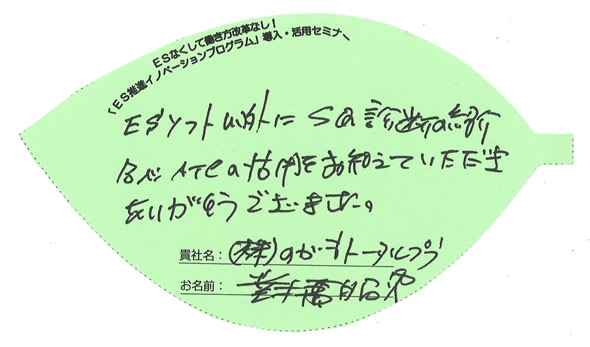 ESなくして働き方改革なし!
「ES推進イノベーションプログラム」導入・活用セミナー
ESソフト以外にSQ診断の紹介
ATCの活用をお教えていただき
ありがとうございました。
貴社名: (株)のがみトータルプラ
お名前: